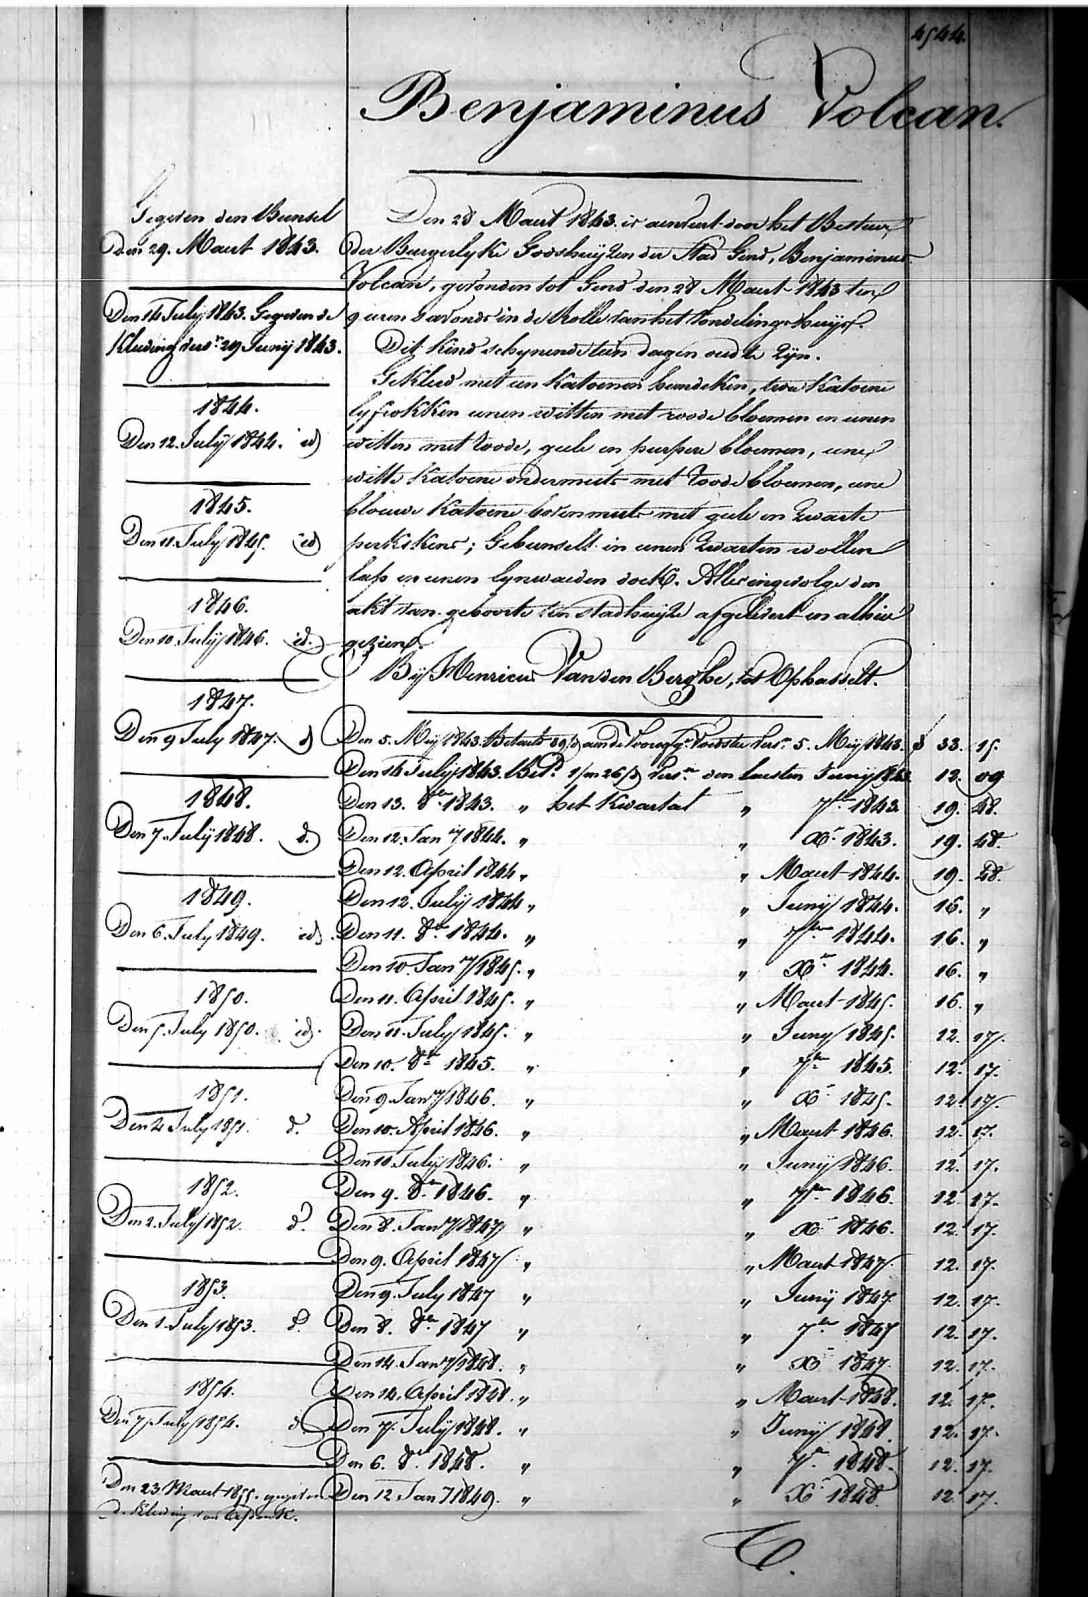 4544.
Benjaminus Volcan.
Gegeven den Bunsel
den 29. Maart 1843.
Den 14 July 1843. Gegeven de
Kleeding vers.n 29 Junij 1843.
1844.
Den 12. Julij 1844. id
1845.
Den 11. July 1845. id
1846.
Den 10. Julij 1846. id.
1847.
Den 9 July 1847. d
1848.
Den 7. Julij 1848. d.
1849.
Den 6. July 1849. id.
1850.
Den 5. July 1850. id.
1851.
Den 4 July 1851. d.
1852.
Den 2. July 1852. d.
1853.
Den 1. July 1853. d.
1854.
Den 7 July 1854. d.
Den 23 Maart 1855. gegeven
de Kleeding van
Den 28 Maart 1843. is aenveert door het Bestuer
der Burgerlyke Godshuijzen der Stad Gend, Benjaminus
Volcan, gevonden tot Gend den 28 Maart 1843 ten
uren 's avonds in de Rolle van het Vondelingshuijs.
Dit kind schynende tien dagen oud te zijn.
Gekleed met een katoenen hemdeken, twee katoene
lyfrokken eenen witten met roode bloemen en eenen
witten met roode, geele en purpere bloemen, eene
witte katoene ondermuts met roode bloemen, eene
blauwe katoene bovenmuts met geele en zwarte
perkskens; Gebunselt in eenen zwarten wollen
lap en eenen lynwaeden doek. Alles ingevolge den
akt van geboorte ten stadhuijze afgelevert en alhier
gezien.
Bij Henricus Van den Berghe, tot Ophasselt.
Den 5. Meij 1843. Betaelt 39/d aen de Voorsg.e Voedster vers.n 5. Meij 1843. d 33. 15.
Den 14 Julij 1843. Bet.d 1/m 26/d vers.n den laesten Junij 1843 12. 09
Den 13. 8.ber 1843. " het Kwartael " 7.ber 1843. 19. 48.
Den 12. Jan.y 1844. " " X.r 1843. 19. 48.
Den 12. April 1844 " " Maart 1844. 19. 48.
Den 12. Julij 1844 " " Junij 1844. 16. "
Den 11. 8.ber 1844. " " 7.ber 1844. 16. "
Den 10. Jan.y 1845. " " X.r 1844. 16. "
Den 11. April 1845. " " Maart 1845. 16. "
Den 11. July 1845. " " Juny 1845. 12. 17.
Den 10. 8.br 1845. " " 7.br 1845. 12. 17.
Den 9. Jan.y 1846. " " X.r 1845. 12. 17.
Den 10. April 1846. " " Maart 1846. 12. 17.
Den 10 Julij 1846. " " Junij 1846. 12. 17.
Den 9. 8.br 1846. " " 7.br 1846. 12. 17.
Den 8. Jan.y 1847 " " X.r 1846. 12. 17.
Den 9. April 1847 " " Maart 1847. 12. 17.
Den 9. July 1847 " " Junij 1847. 12. 17.
Den 8. 8.br 1847 " " 7.br 1847 12. 17.
Den 14. Jan.y 1848. " " X.r 1847. 12. 17.
Den 14. April 1848. " " Maart 1848. 12. 17.
Den 7. Julij 1848. " " Junij 1848. 12. 17.
Den 6. 8.br 1848. " " 7.br 1848. 12. 17.
Den 12 Jan.y 1849. " " X.r 1848 12 17.